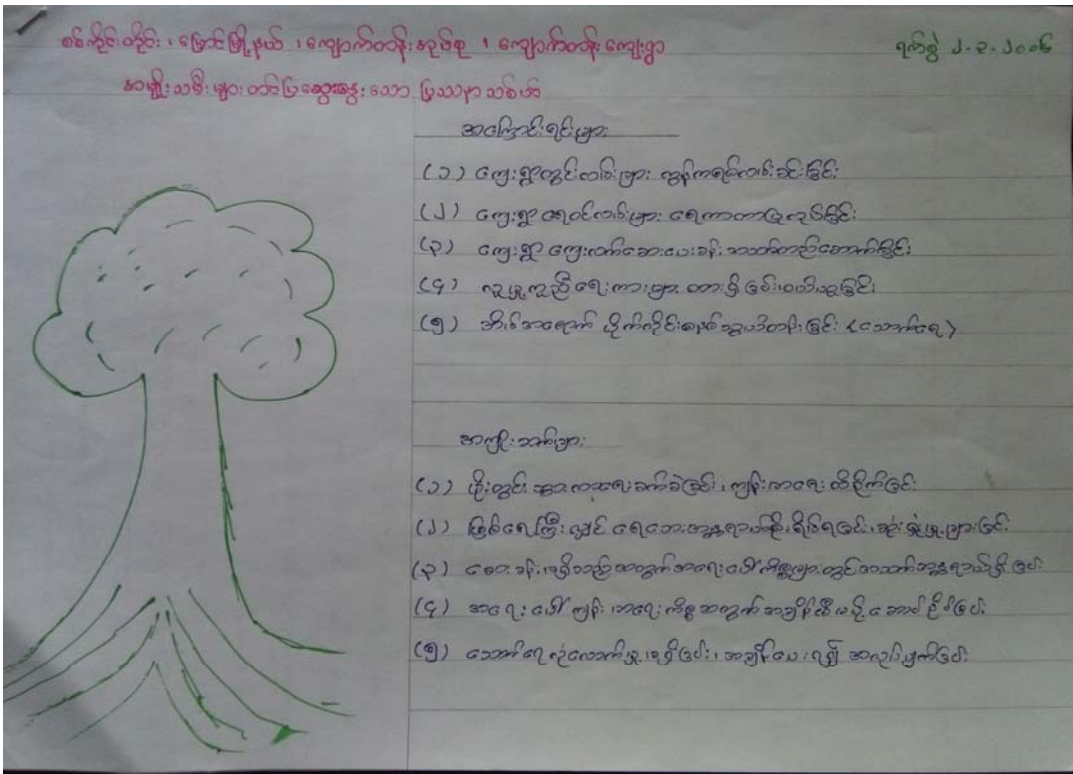 စစ်ကိုင်းတိုင်း ၊ မြောင်မြို့နယ် ၊ ကျောက်တန်းအုပ်စု ၊ ကျောက်တန်းကျေးရွာ
ရက်စွဲ ၂-၃-၂၀၁၆
အမျိုးသမီးများ တင်ပြဆွေးနွေးသော ပြဿနာသစ်ပင်
အကြောင်းရင်းများ
(၁) ကျေးရွာတွင်းလမ်းများ ကွန်ကရစ်လမ်းခင်းခြင်း
(၂) ကျေးရွာ ရေဝင်လမ်းများ ရေကာတာပြုလုပ်ခြင်း
(၃) ကျေးရွာ ကျေးလက်ဆေးပေးခန်း တည်ဆောက်ခြင်း
(၄) လူမှုကူညီရေးကားများ ထားရှိခြင်း
(၅) အိမ်အရောက် ပိုက်လိုင်း တန်းခြင်း (သောက်ရေ)
အကျိုးဆက်များ
(၁) မိုးတွင်း သွားလာရေးခက်ခဲခြင်း ၊ ကျန်းမာရေး ထိခိုက်ခြင်း
(၂) မြစ်ရေကြီးလျှင် ရေဘေးအန္တရာယ်စိုးရိမ်ရခြင်း ၊ ဆုံးရှုံးမှုများခြင်း
(၃) ဆေးခန်းမရှိသည့်အတွက် အရေးပေါ်ကိစ္စများတွင် အသက်အန္တရာယ်ရှိခြင်း
(၄) အရေးပေါ် ကျန်းမာရေးကိစ္စအတွက် အချိန်မီမပို့ဆောင်နိုင်ခြင်း
(၅) သောက်ရေ လုံလောက်မှုမရှိခြင်း ၊ အချိန်ပေးရ၍ အလုပ်ပျက်ခြင်း